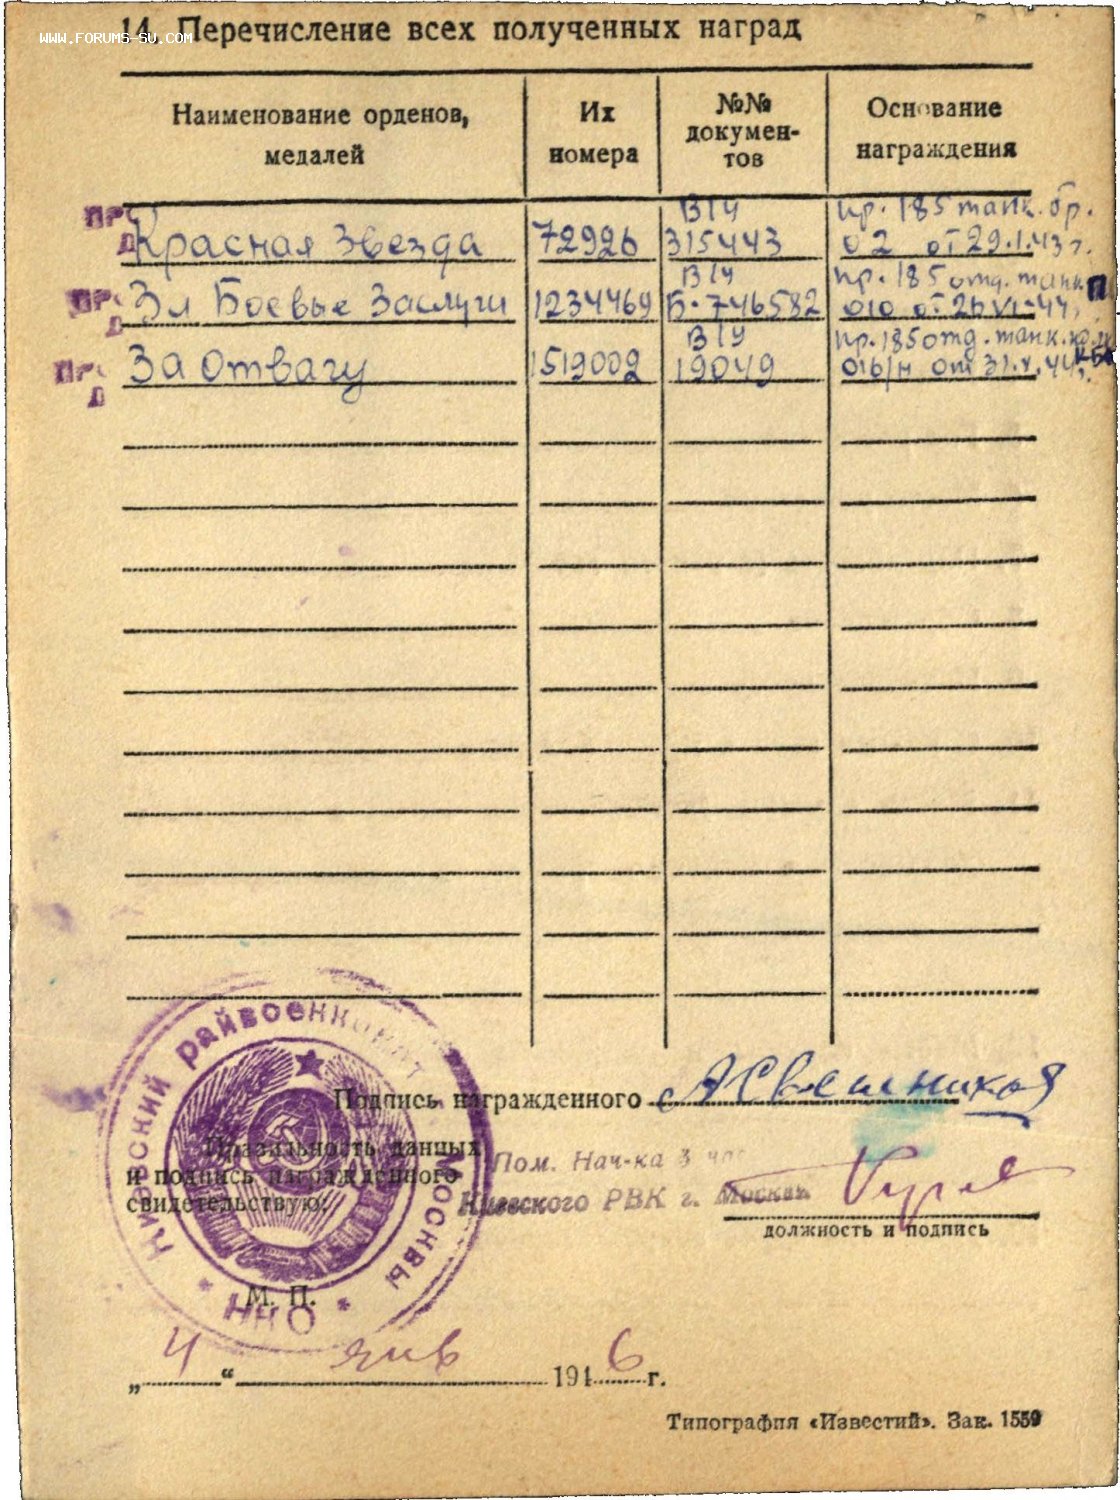 14. Перечисление всех полученных наград
WWW.FORUMS-SU.COM
Наименование орденов, медалей
Их номера
№№ докумен-тов
Основание награждения
Красная Звезда 72926 В/ч 315443 пр. 185 танк. бр. 02 от 29.1.43 г.
За Боевые Заслуги 1234469 В/ч Б-746582 пр. 185 отд. танк. п 010 от 26 VI-44,
За Отвагу 1519009 В/У 19049 пр. 185 отд. танк. 016/н от 31.X.44,
Подпись награжденного АСвешников
Правильность данных
и подпись награжденного
свидетельствую:
Пом. Нач-ка 3 час
Киевского РВК г. Москвы
должность и подпись
Киевский райвоенкомат г. Москвы
* НКО *
М. П.
„ 4 “ янв 1946 г.
Типография «Известий». Зак. 1559